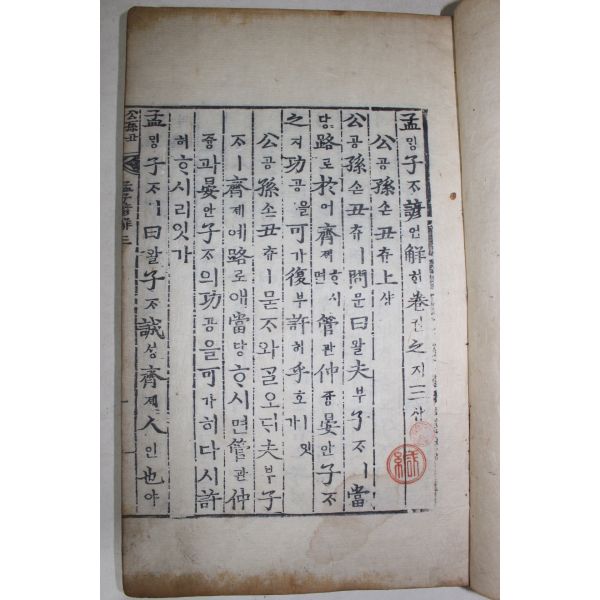 孟ᄆᆡᆼ子ᄌᆞ諺언解ᄒᆡ卷권之지三삼
公공孫손丑츄上샹
公공孫손丑츄ㅣ問문曰왈夫부子ᄌᆞㅣ當
당路로於어齊졔ᄒᆞ시면管관仲즁晏안子ᄌᆞ
之지功공을可가復부許허乎호ㅣ잇가
公공孫손丑츄ㅣ묻ᄌᆞ와ᄀᆞᆯ오ᄃᆡ夫부子
ᄌᆞㅣ齊졔예路로애當당ᄒᆞ시면管관仲
즁과晏안子ᄌᆞ의功공을可가히다시許
허ᄒᆞ시리잇가
孟ᄆᆡᆼ子ᄌᆞㅣ曰왈子ᄌᆞ誠셩齊졔人인也야
公孫丑
孟子諺解 三